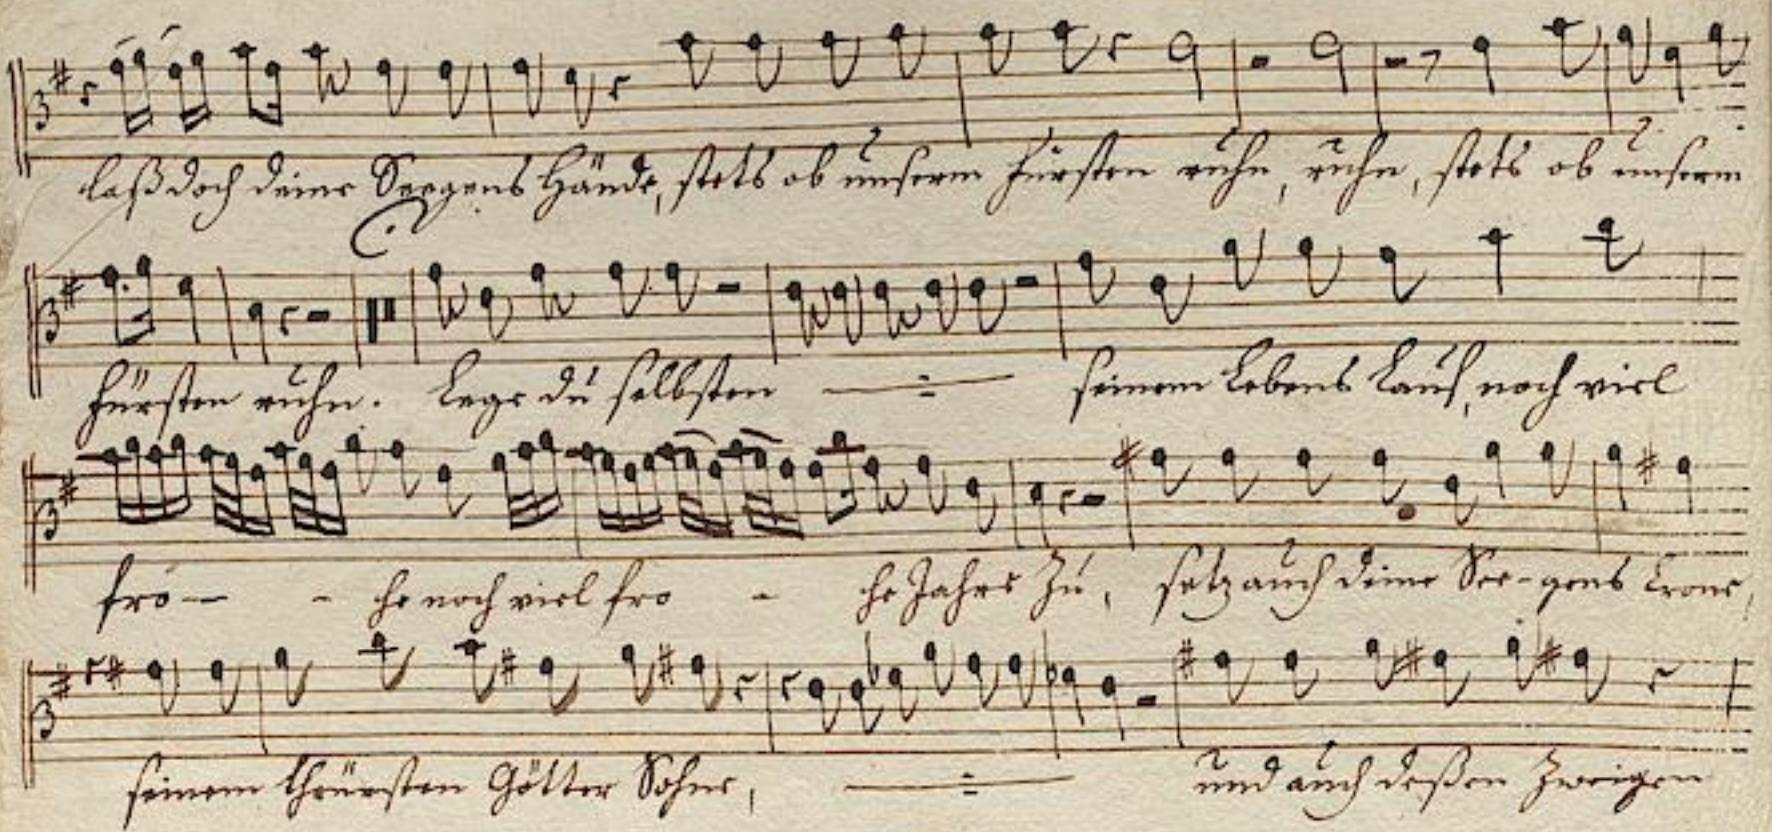 laß doch deine Seegens Hände, stets ob unserm Fürsten ruhn, ruhn, stets ob unserm
Fürsten ruhn. Lege du selbsten seinem Lebens Lauf, noch viel
fro - - he noch viel fro - he Jahre zu, setz auch deine See-gens Crone,
seinem theursten Götter Sohne, und auch deßen Zweigen